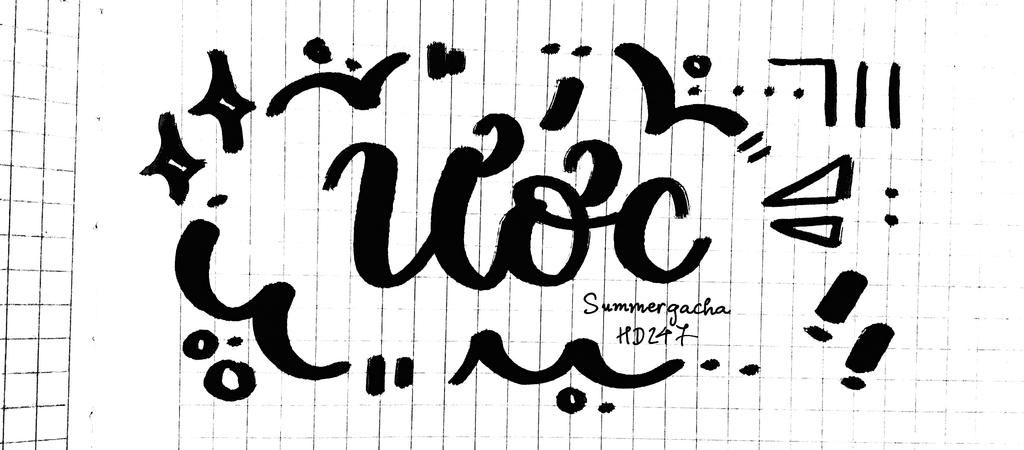 ước
Summergacha
HD247